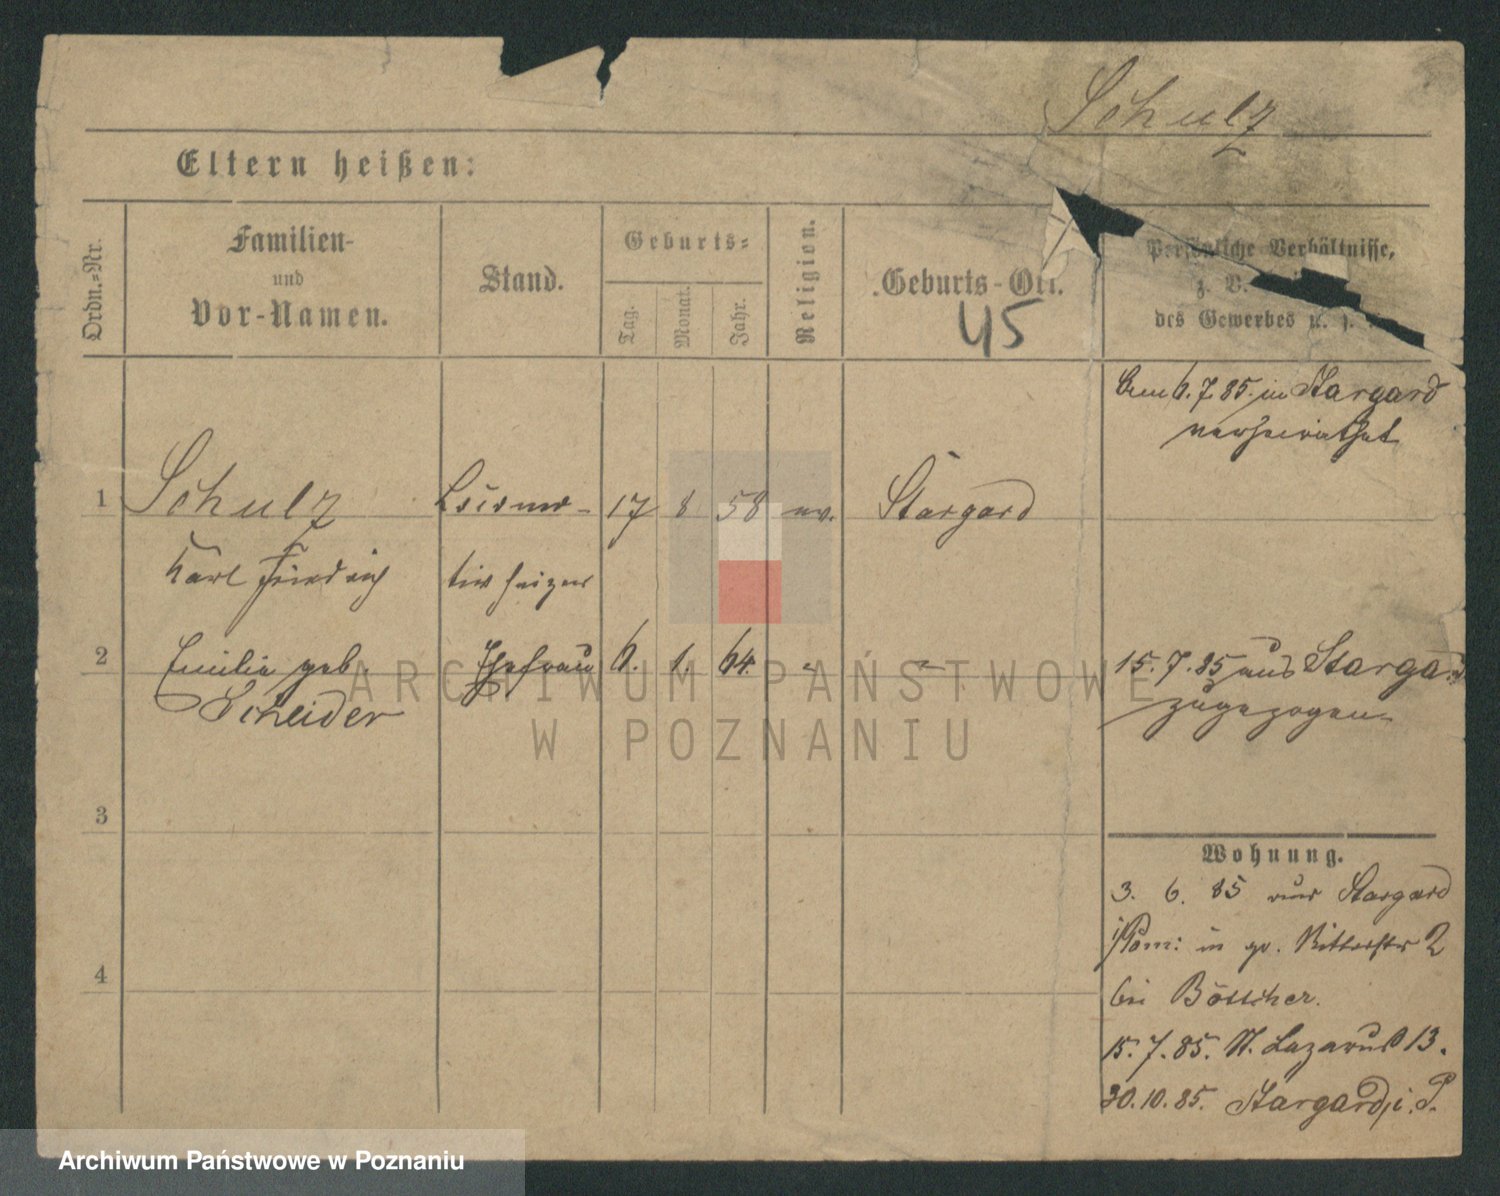 Schulz
Eltern heißen:
Ordn.-Nr.
Familien-
und
Vor-Namen.
Stand.
Geburts-
Tag.
Monat.
Jahr.
Religion.
Geburts-Ort.
45
Persönliche Verhältnisse,
z. B.
des Gewerbes u. s.
6. 7. 85. in Stargard
verheirathet
1 Schulz 17 8 58 ev. Stargard
Karl Friedrich tivheizer
2 Emilie geb. Ehefrau 6. 1. 64. " " 15. 7. 85 aus Stargard
Scheider zugezogen
3
Wohnung.
3. 6. 85 aus Stargard
i/Pom: in gr. Ritterstr 2
bei Böttcher.
4
15. 7. 85. St. Lazarus 13.
30. 10. 85. Stargard i. P.
ARCHIWUM PAŃSTWOWE
W POZNANIU
Archiwum Państwowe w Poznaniu